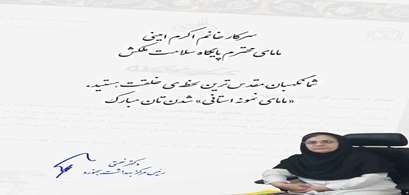 سرکار خانم اکرم امینی
مامای محترم پایگاه سلامت ملکش
شما نگهبان مقدس‌ترین لحظه‌ی خلقت هستید.
«مامای نمونه استانی» شدن‌تان مبارک
دکتر
رییس مرکز بهداشت